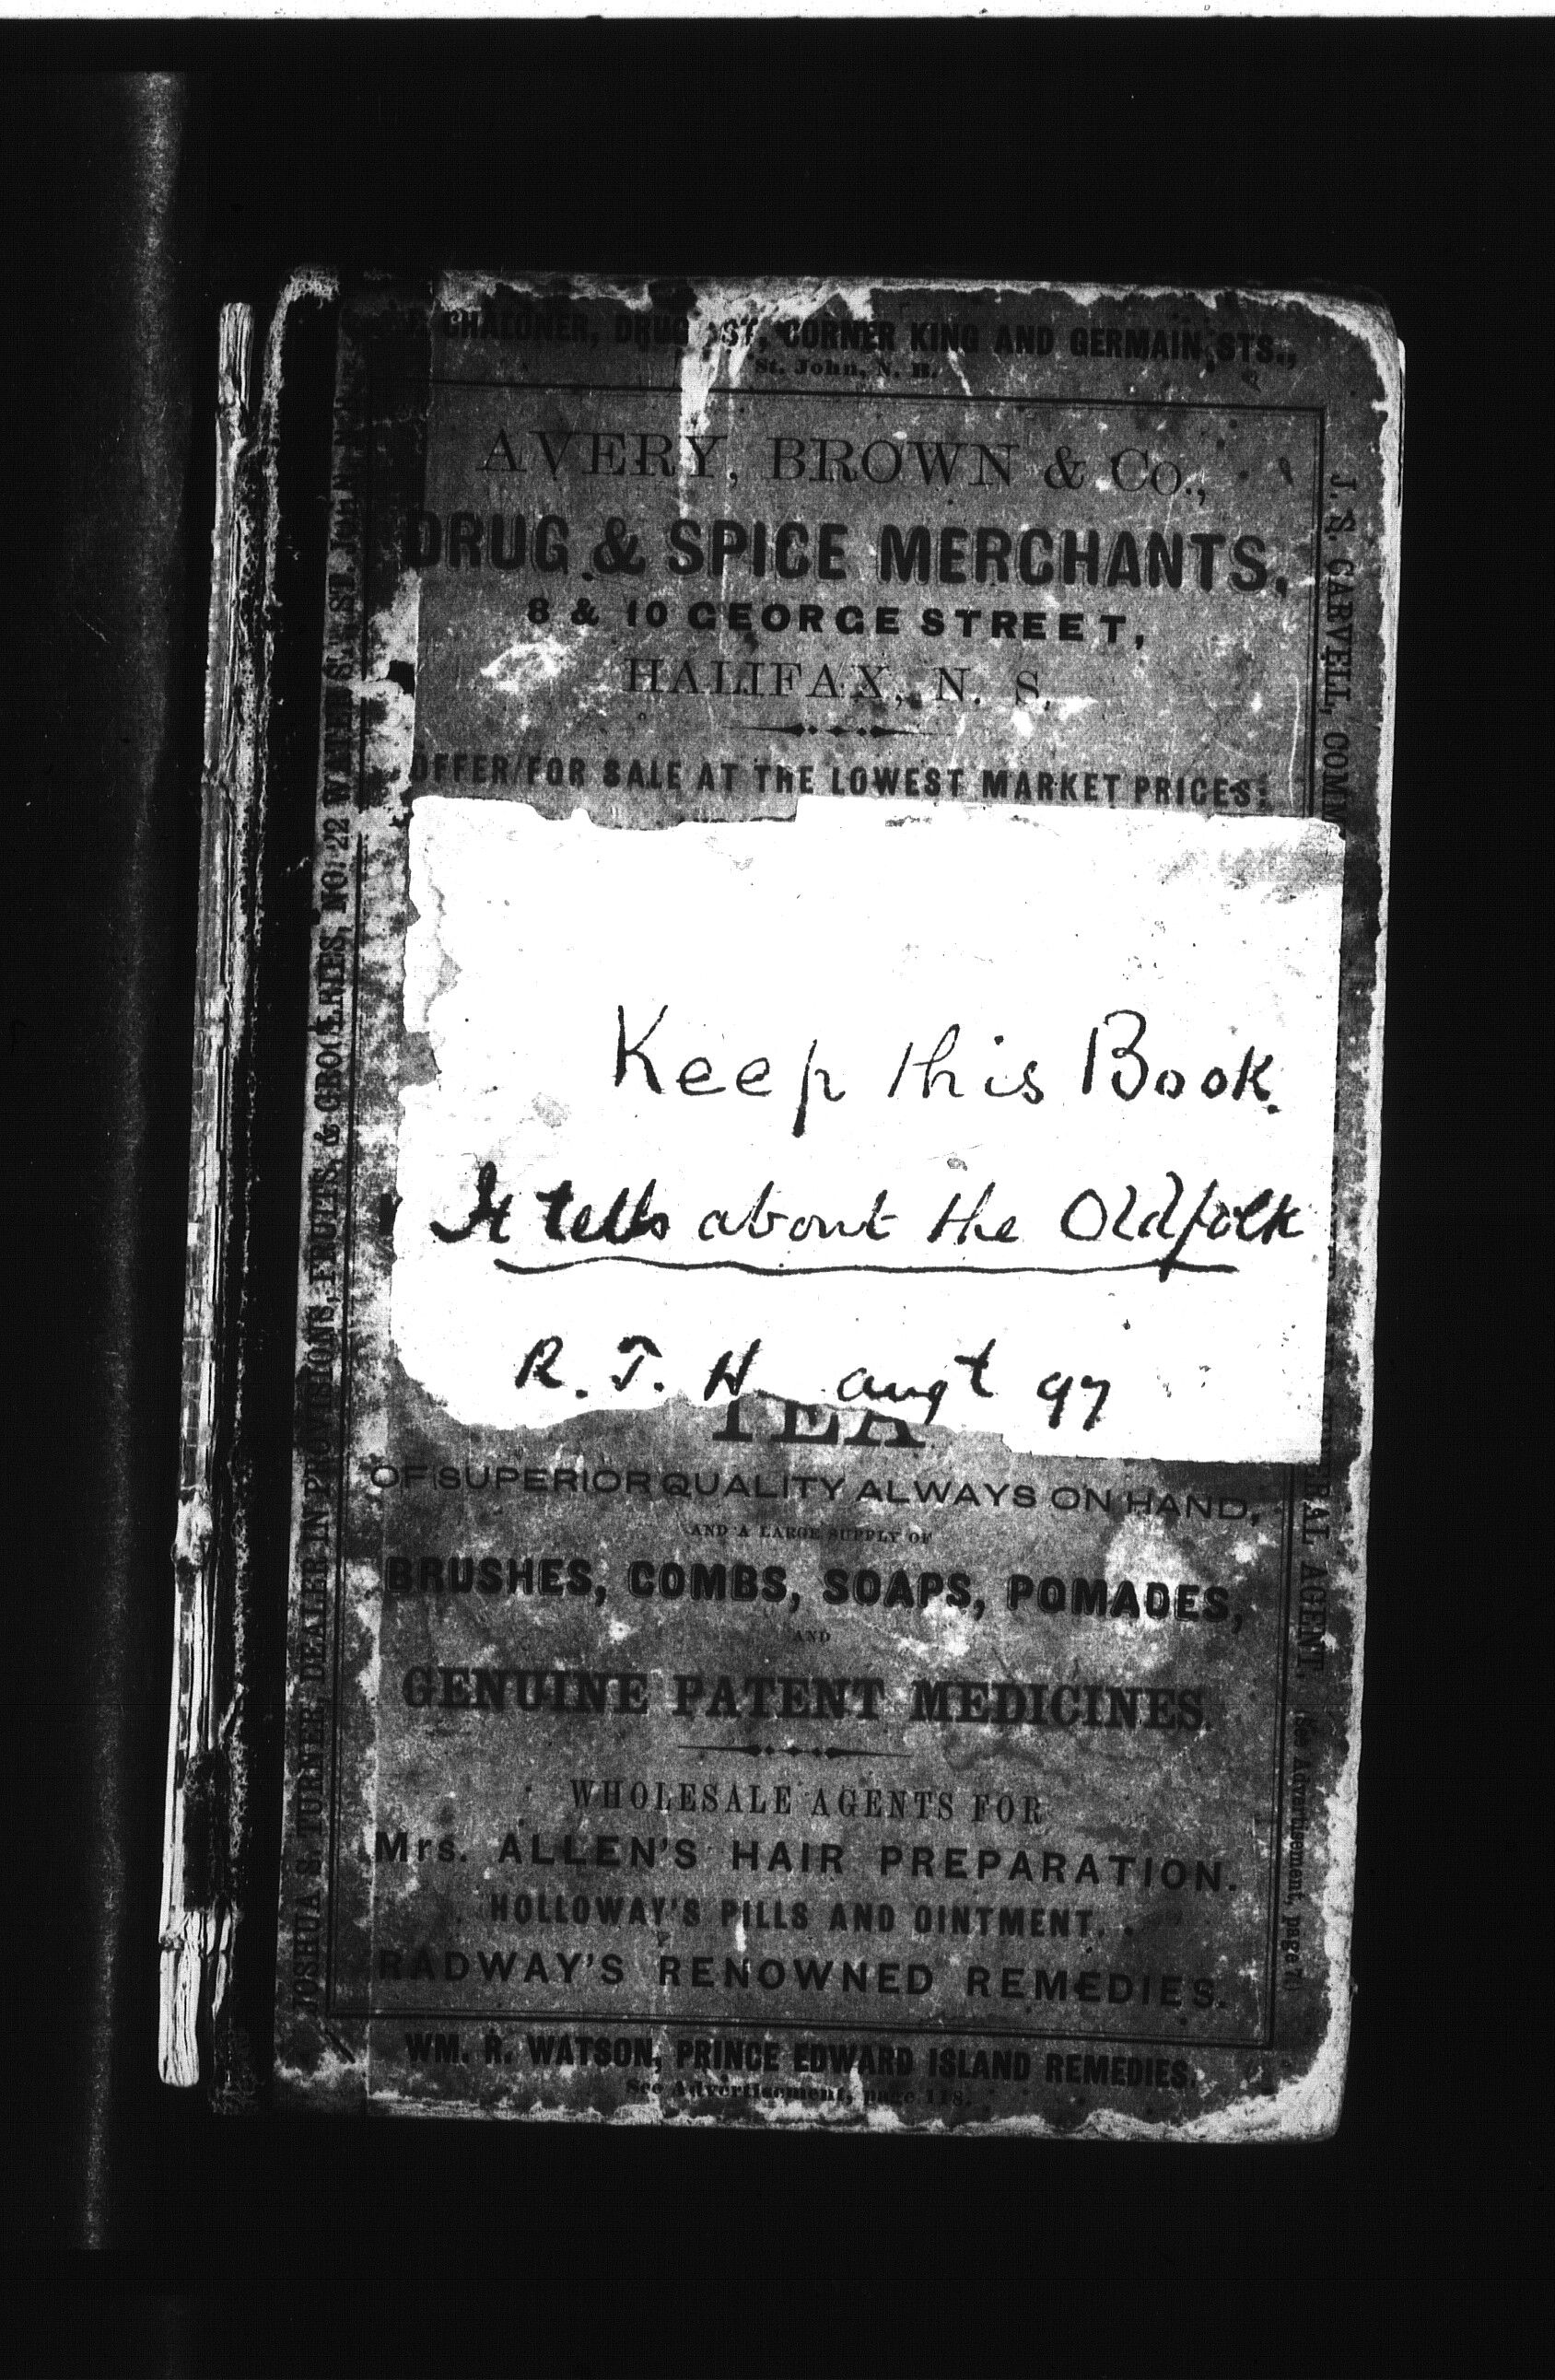 CHALONER, DRUGGIST, CORNER KING AND GERMAIN STS.,
St. John, N. B.
AVERY, BROWN & Co.,
DRUG & SPICE MERCHANTS,
8 & 10 GEORGE STREET,
HALIFAX, N. S.
OFFER FOR SALE AT THE LOWEST MARKET PRICES:
Keep this Book.
It tells about the Oldfolk
R. T. H augt 97
TEA
OF SUPERIOR QUALITY ALWAYS ON HAND,
AND A LARGE SUPPLY OF
BRUSHES, COMBS, SOAPS, POMADES,
AND
GENUINE PATENT MEDICINES.
WHOLESALE AGENTS FOR
Mrs. ALLEN'S HAIR PREPARATION.
HOLLOWAY'S PILLS AND OINTMENT.
RADWAY'S RENOWNED REMEDIES.
WM. R. WATSON, PRINCE EDWARD ISLAND REMEDIES.
See Advertisement, page 118.
JOSHUA S. TURNER, DEALER IN PROVISIONS, FRUITS, & GROCERIES, NO. 22 WATER ST. ST. JOHN N.
J. S. CARVELL, COMM ERAL AGENT. (See Advertisement, page 7.)